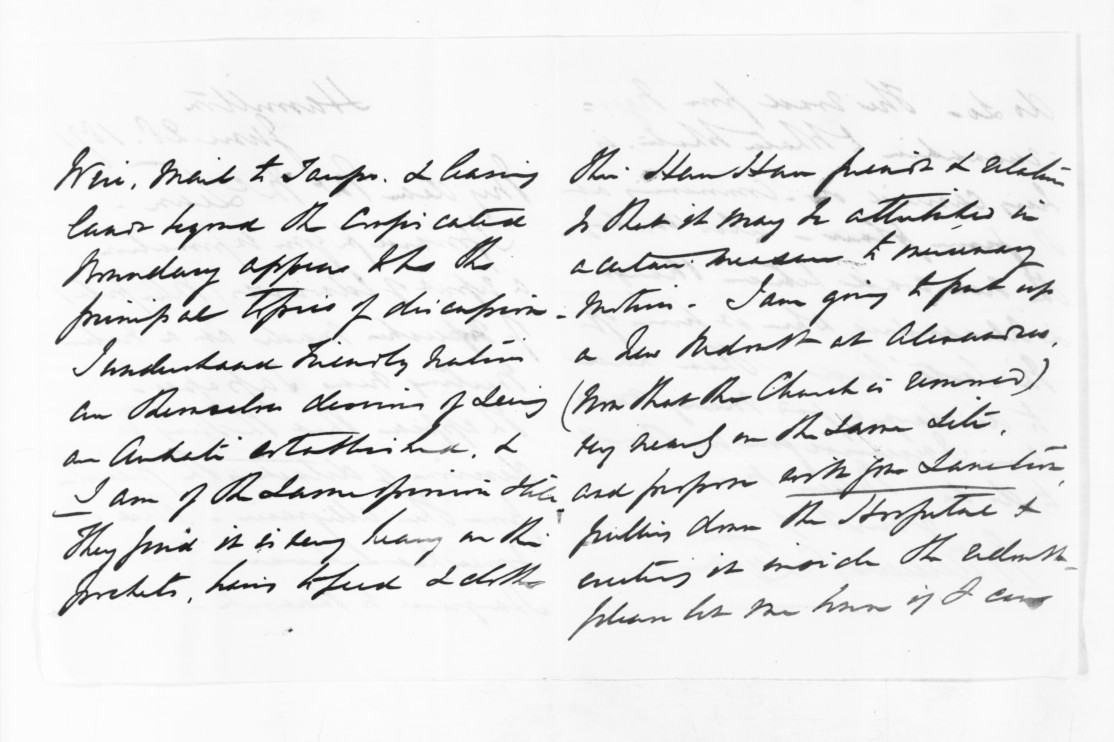 Weir, Mail to Taupo. & leasing
lands beyond the Confiscated
Boundary appears to be the
principal topics of discussion -
I understand Friendly Natives
are themselves desirous of being
an established, &
I am of the same opinion
They find it is very heavy on their
pockets, having to feed & clothe
their Hau Hau friends & relations
so that it may be attributed in
a certain measure to mercenary
motives - I am going to put up
a New Redoubt at Alexandra,
(Now that the Church is removed)
very nearly on the same site,
and propose with your sanction,
pulling down the Hospital &
erecting it inside the redoubt -
please let me know if I can